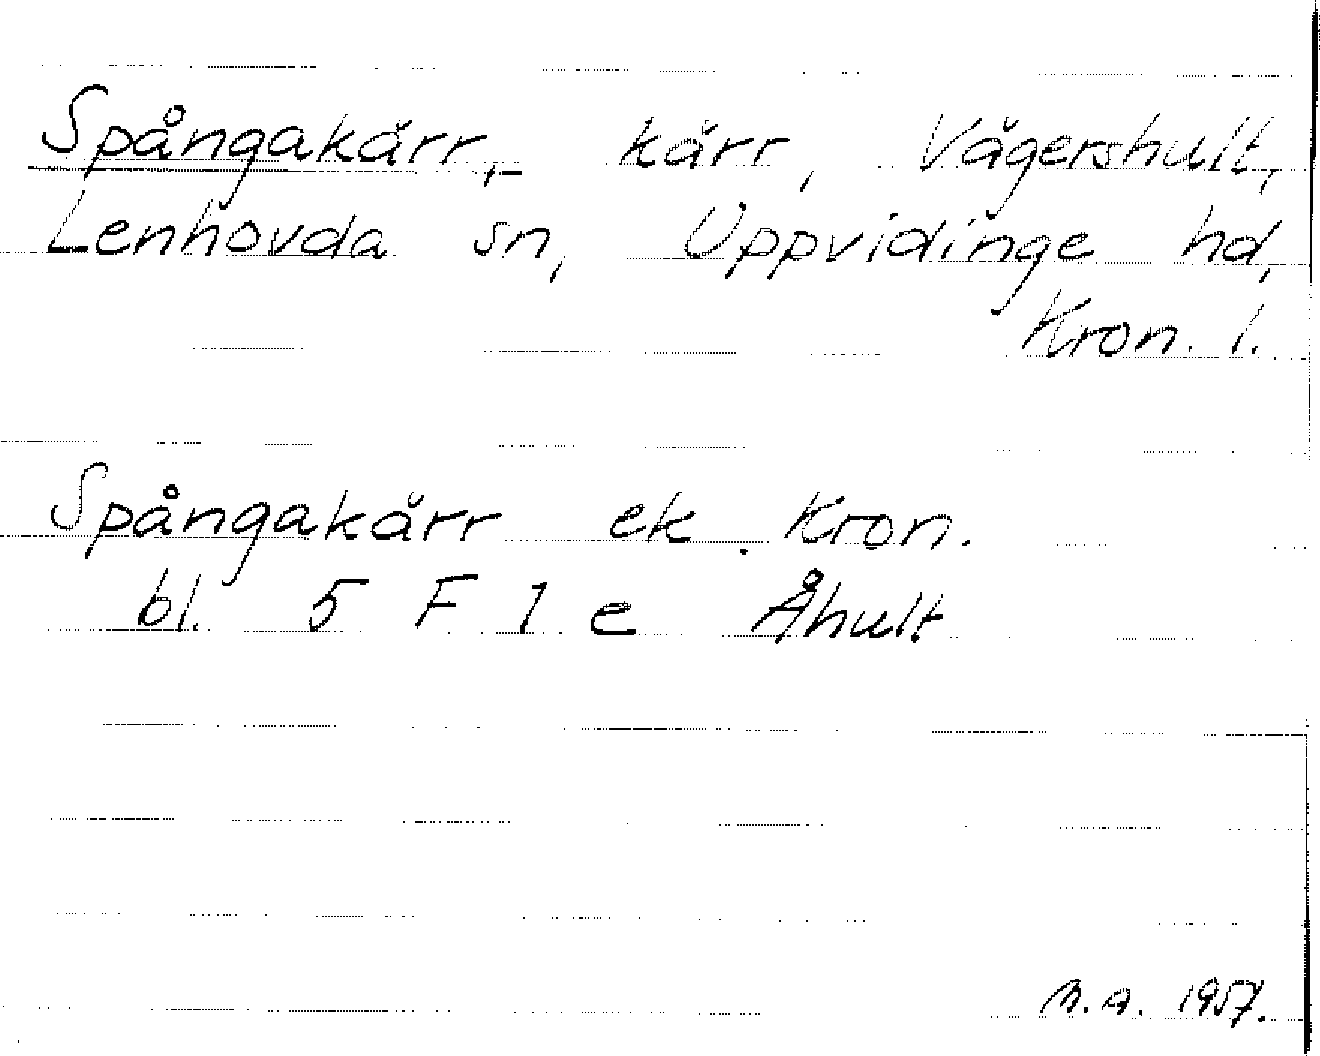 Spångakärr, kärr, Vägershult,
Lenhovda sn, Uppvidinge hd,
Kron. l.
Spångakärr ek. Kron.
bl. 5 F 1 e Åhult
M.A. 1957.